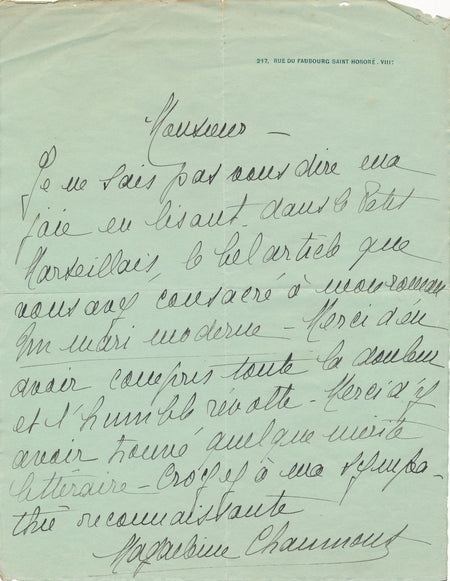 217, RUE DU FAUBOURG SAINT HONORÉ. VIIIe
Monsieur —
Je ne sais pas vous dire ma
joie en lisant, dans le Petit
Marseillais, le bel article que
vous avez consacré à mon roman
Un mari moderne — Merci d'en
avoir compris toute la douleur
et l'humble révolte — Merci d'y
avoir trouvé quelque mérite
littéraire — Croyez à ma sympa-
thie reconnaissante
Magdeleine Chaumont